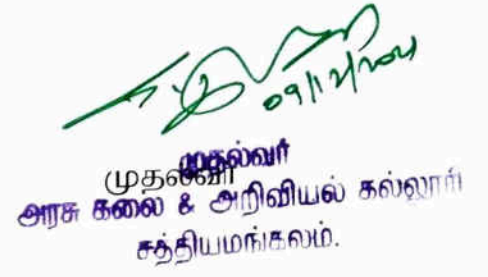 09/12/2024
முதல்வர்
முதல்வர்
அரசு கலை & அறிவியல் கல்லூரி
சத்தியமங்கலம்.